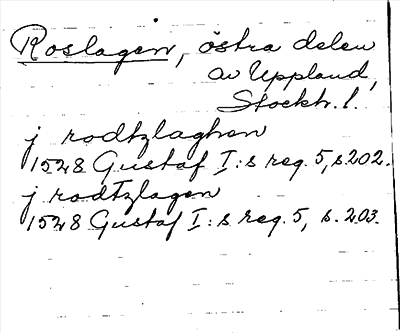 Roslagen, östra delen
av Uppland,
Stockh. l.
j rodtzlaghen
1528 Gustaf I:s reg. 5, s. 202.
j rodtzlagen
1528 Gustaf I:s reg. 5, s. 203.